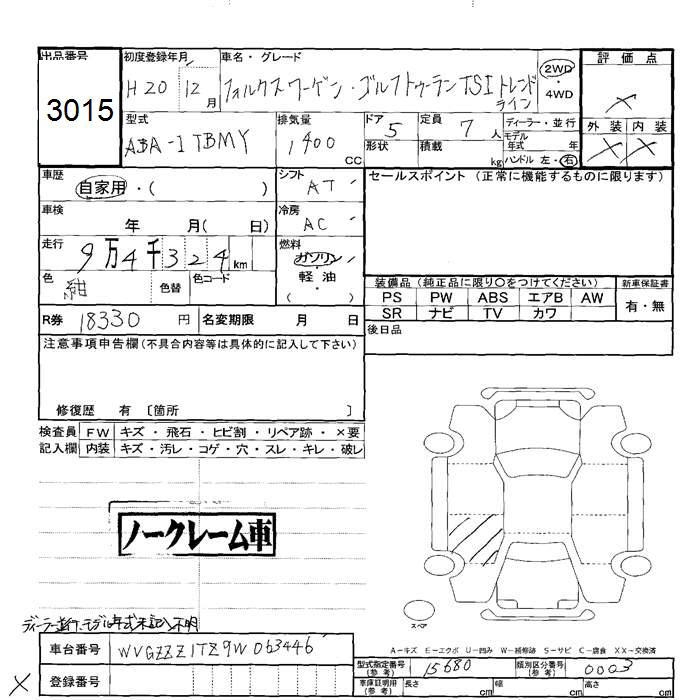 出品番号
3015
初度登録年月
H20 12月
車名・グレード
フォルクスワーゲン・ゴルフトゥーランTSI トレンドライン
2WD
4WD
評価点
×
外装 内装
× ×
型式
ABA-1TBMY
排気量
1400 CC
ドア 5
形状
定員 7 人
積載 kg
ディーラー・並行
モデル年式 年
ハンドル 左・右
車歴
自家用・( )
シフト
AT
セールスポイント (正常に機能するものに限ります)
車検
年 月( 日)
冷房
AC
走行
9万4千324km
燃料
ガソリン・軽油
( )
色
紺
色替
色コード
装備品 (純正品に限り○をつけてください)
PS PW ABS エアB AW
SR ナビ TV カワ
新車保証書
有・無
R券 18330 円
名変期限 月 日
後日品
注意事項申告欄(不具合内容等は具体的に記入して下さい)
修復歴 有 〔箇所 〕
検査員記入欄
FW キズ・飛石・ヒビ割・リペア跡・×要
内装 キズ・汚レ・コゲ・穴・スレ・キレ・破レ
ノークレーム車
スペア
ディーラー並行、モデル年式未記入不明
A-キズ E-エクボ U-凹み W-補修跡 S-サビ C-腐食 XX-交換済
車台番号 WVGZZZ1TZ9W063446
× 登録番号
型式指定番号(参考) 15680
類別区分番号(参考) 0003
車庫証明用(参考) 長さ cm 幅 cm 高さ cm